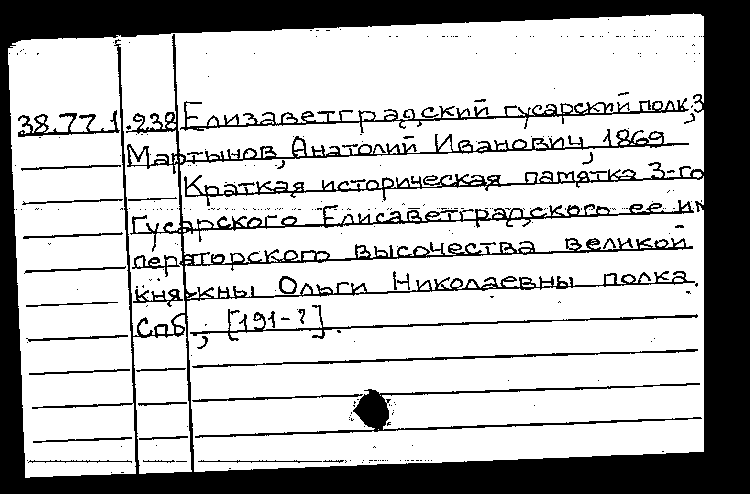 38.77.1.238 Елизаветградский гусарский полк, 3
Мартынов, Анатолий Иванович, 1869
Краткая историческая памятка 3-го
Гусарского Елисаветградского ее им
ператорского высочества великой
княжны Ольги Николаевны полка.
Спб., [191-?].